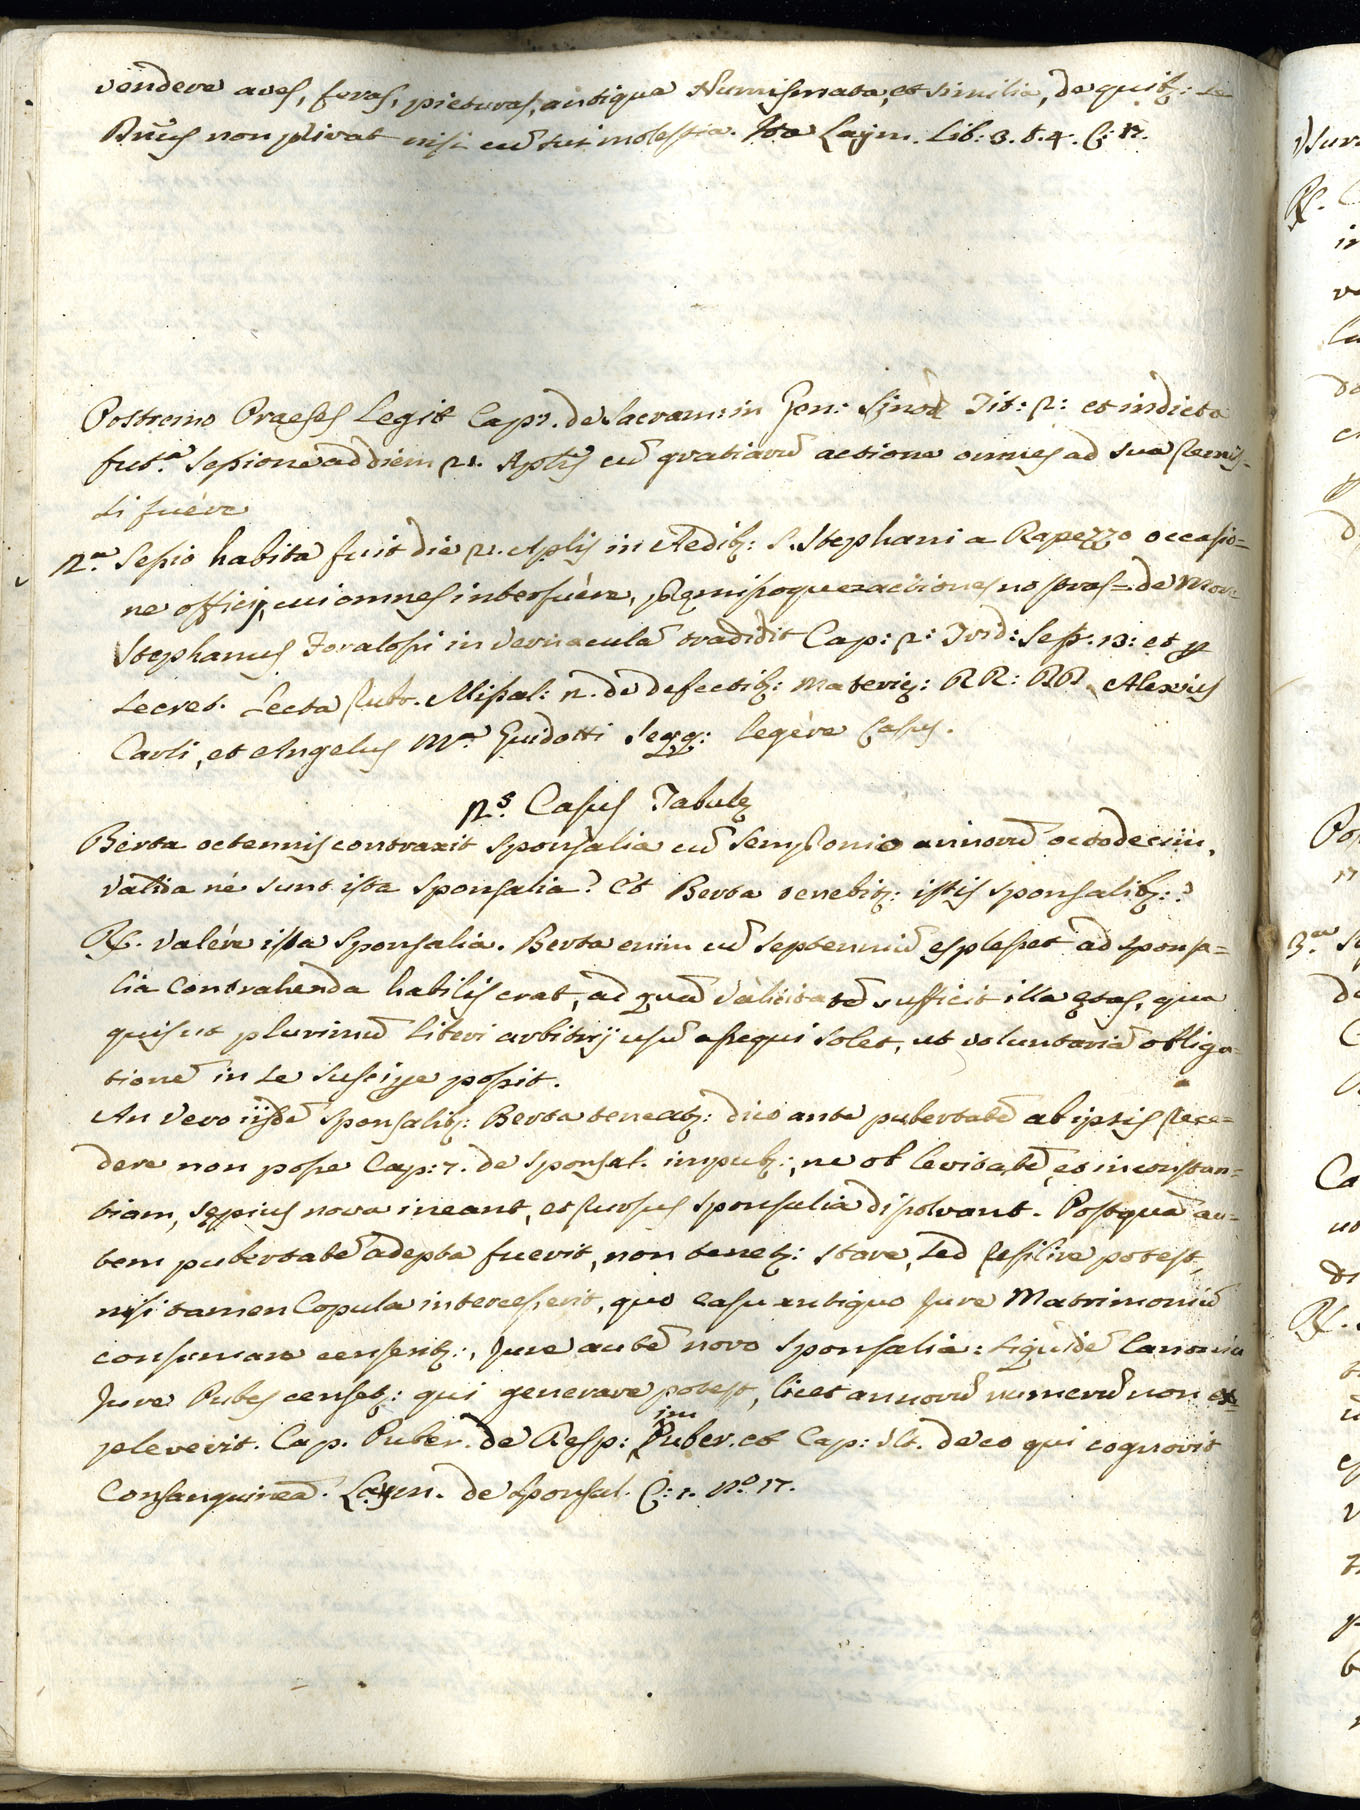 vendere aves, feras, picturas, antiqua Numismata, et similia, de quibz: se
Dñus non privat nisi cū sui molestia. Ita Laym. Lib: 3. t. 4. C: 17.
Postremo Praeses legit Cap: de Sacram: in Gen: Sinod Tit: 2: et indicta
fut.ª sessionē ad diem 21. Aplis cū gratiarū actione omnes ad sua remis-
si fuére
2.ª Sessio habita fuit die 21. Aplis in Aedibz: S. Stephani a Rapezzo occasio=
ne officij, cui omnes interfuére, = de Mor:
Stephanus Foralossi in vernaculā tradidit Cap: 2: Trid: Sess. 13: et p
secret. Lecta Rubr. Missal: n. de defectibz: Materię: RR: DD. Alexius
Carli, et Angelus M.ª Guidotti legére Casus.
2.s Casus Tabulę
Berta octennis contraxit Sponsalia cū Sempronio annorū octodecim,
valida né sunt ista Sponsalia? Et Berta tenebitz: istis sponsalibz:?
R. valére ista Sponsalia. Berta enim cū septenniū explesset ad sponsa=
lia contrahenda habilis erat, ad quā validitatē sufficit illa ętas, qua
quis ut plurimū liberi arbitrij usū assequi solet, ut voluntariā obliga-
tionē in se suscipe possit.
An vero ijsdē Sponsalibz: Berta teneatz: dico ante pubertatē ab ipsis rece=
dere non posse Cap: 7. de Sponsal. impubz:, ne ob levitatē, et inconstan=
tiam, sępius nova ineant, et rursus sponsalia dissolvant. Postquā au=
tem pubertatē adepta fuerit, non tenetz: stare, sed resilire potest,
nisi tamen Copula intercesserit, quo casu antiquo Jure Matrimoniū
consumare censentz:, Jure autē novo sponsalia: siquidē Canonico
Jure Pubes censetz: qui generare potest, licet annorū numerū non ex=
pleverit. Cap. Puber. de Desp: impuber. et Cap: ult. de eo qui cognovit
Consanguineā. Laym. de Sponsal. C: 1. N.º 17.